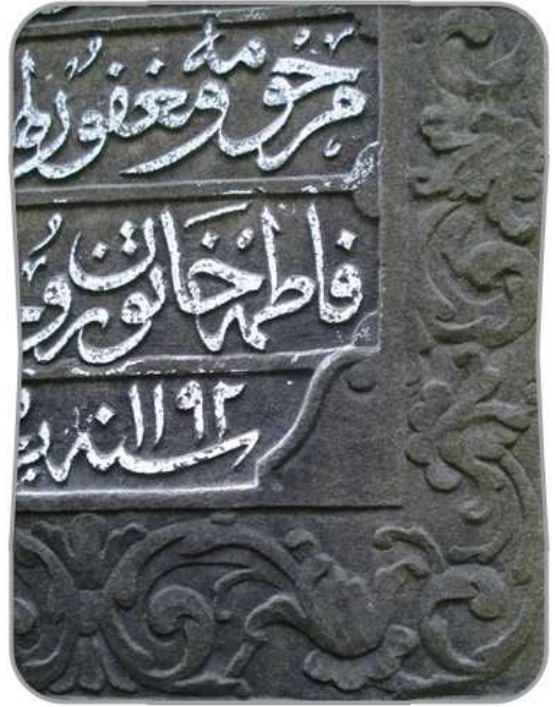 مرحومه و مغفور
فاطمه خاتون
سنه ١١٩٢